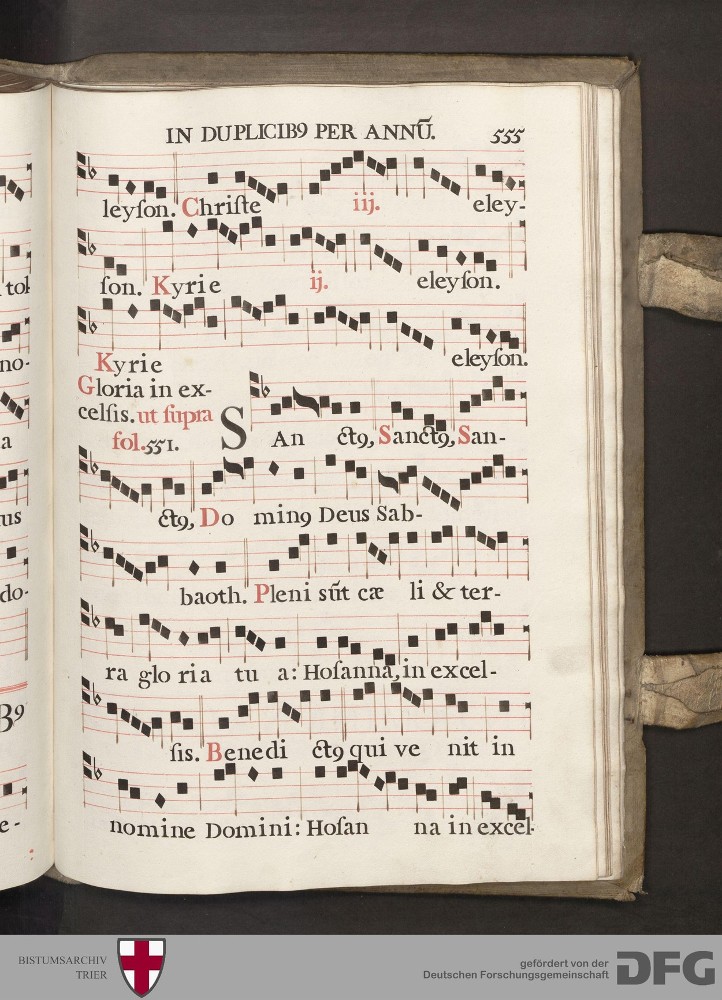 IN DUPLICIB9 PER ANNŪ. 555
leyſon. Chriſte iij. eley-
ſon. Kyrie ij. eleyſon.
Kyrie eleyſon.
Gloria in ex-
celſis. ut ſupra
fol. 551.
SAn ct9, Sanct9, San-
ct9, Do min9 Deus Sab-
baoth. Pleni sūt cæ li & ter-
ra glo ria tu a: Hoſanna, in excel-
ſis. Benedi ct9 qui ve nit in
nomine Domini: Hoſan na in excel-
no-
a
us
do-
B9
e-
BISTUMSARCHIV
TRIER
gefördert von der
Deutschen Forschungsgemeinschaft
DFG